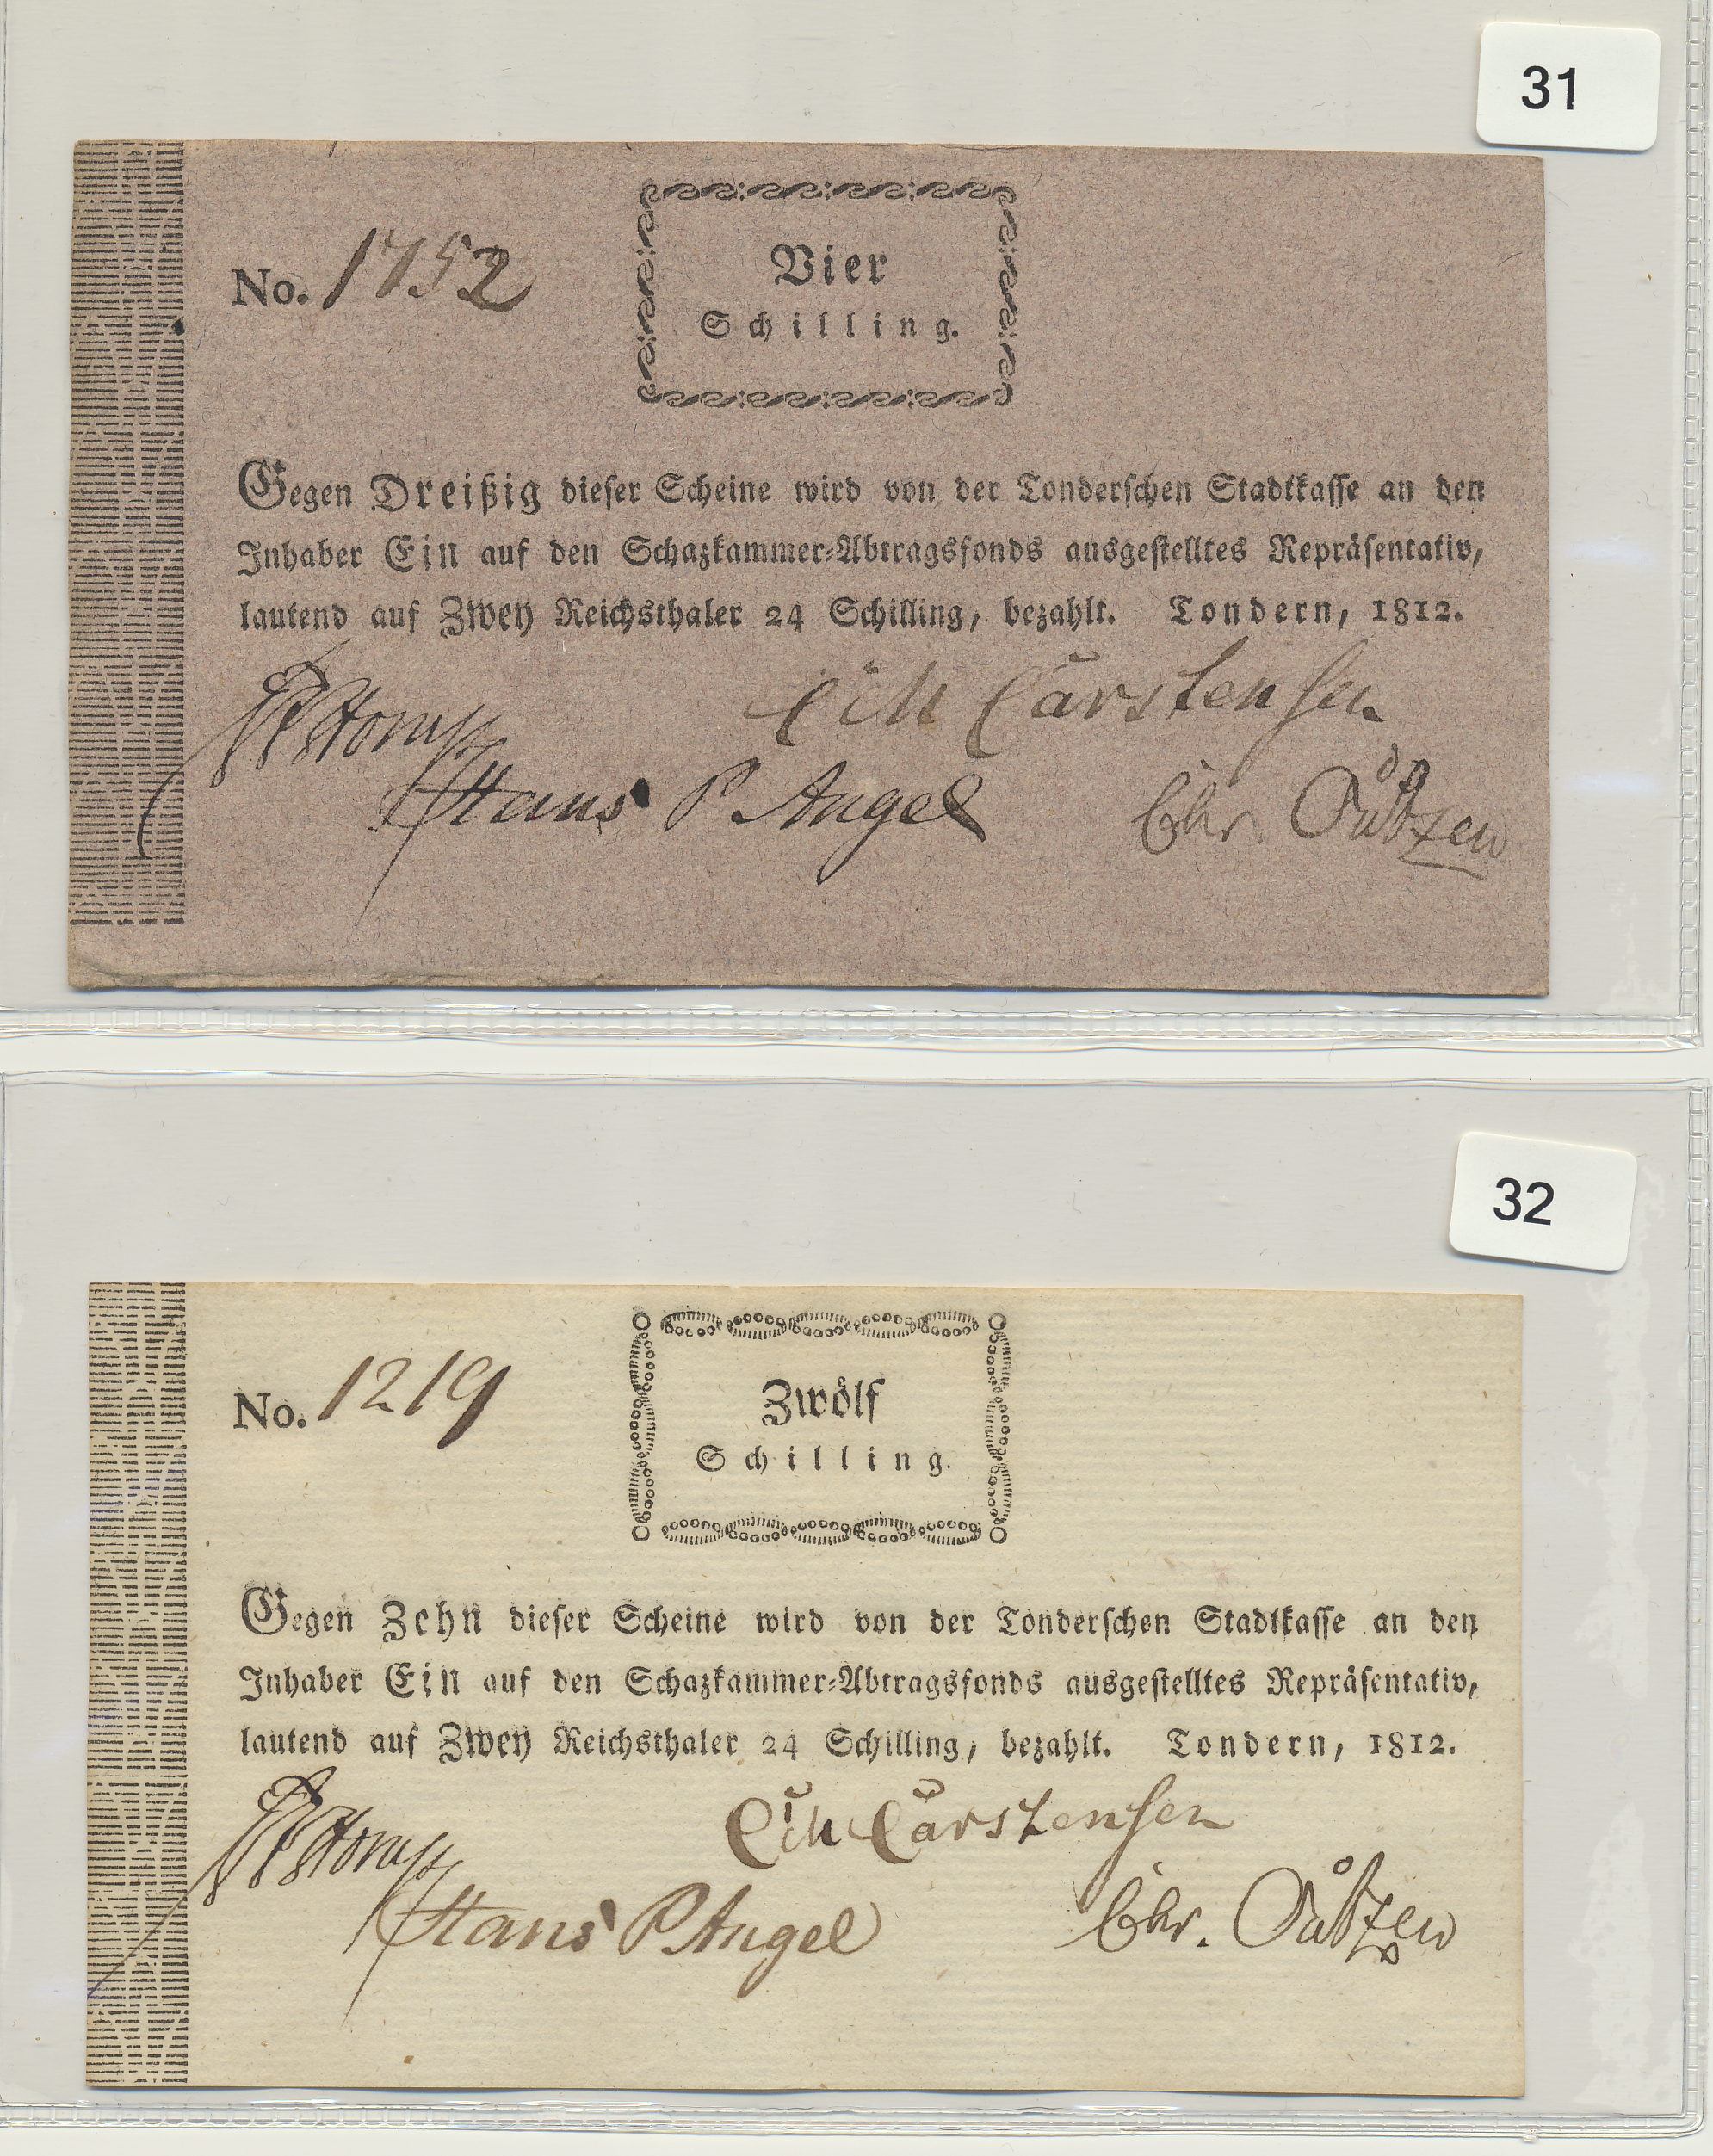 31
No. 1752
Vier
Schilling.
Gegen Dreißig dieser Scheine wird von der Tonderschen Stadtkasse an den
Inhaber Ein auf den Schazkammer-Abtragsfonds ausgestelltes Repräsentativ,
lautend auf Zwey Reichsthaler 24 Schilling, bezahlt. Tondern, 1812.
Carstensen
Hans P. Angel Chr.
32
No. 1219
Zwölf
Schilling.
Gegen Zehn dieser Scheine wird von der Tonderschen Stadtkasse an den
Inhaber Ein auf den Schazkammer-Abtragsfonds ausgestelltes Repräsentativ,
lautend auf Zwey Reichsthaler 24 Schilling, bezahlt. Tondern, 1812.
Carstensen
Hans P. Angel Chr.